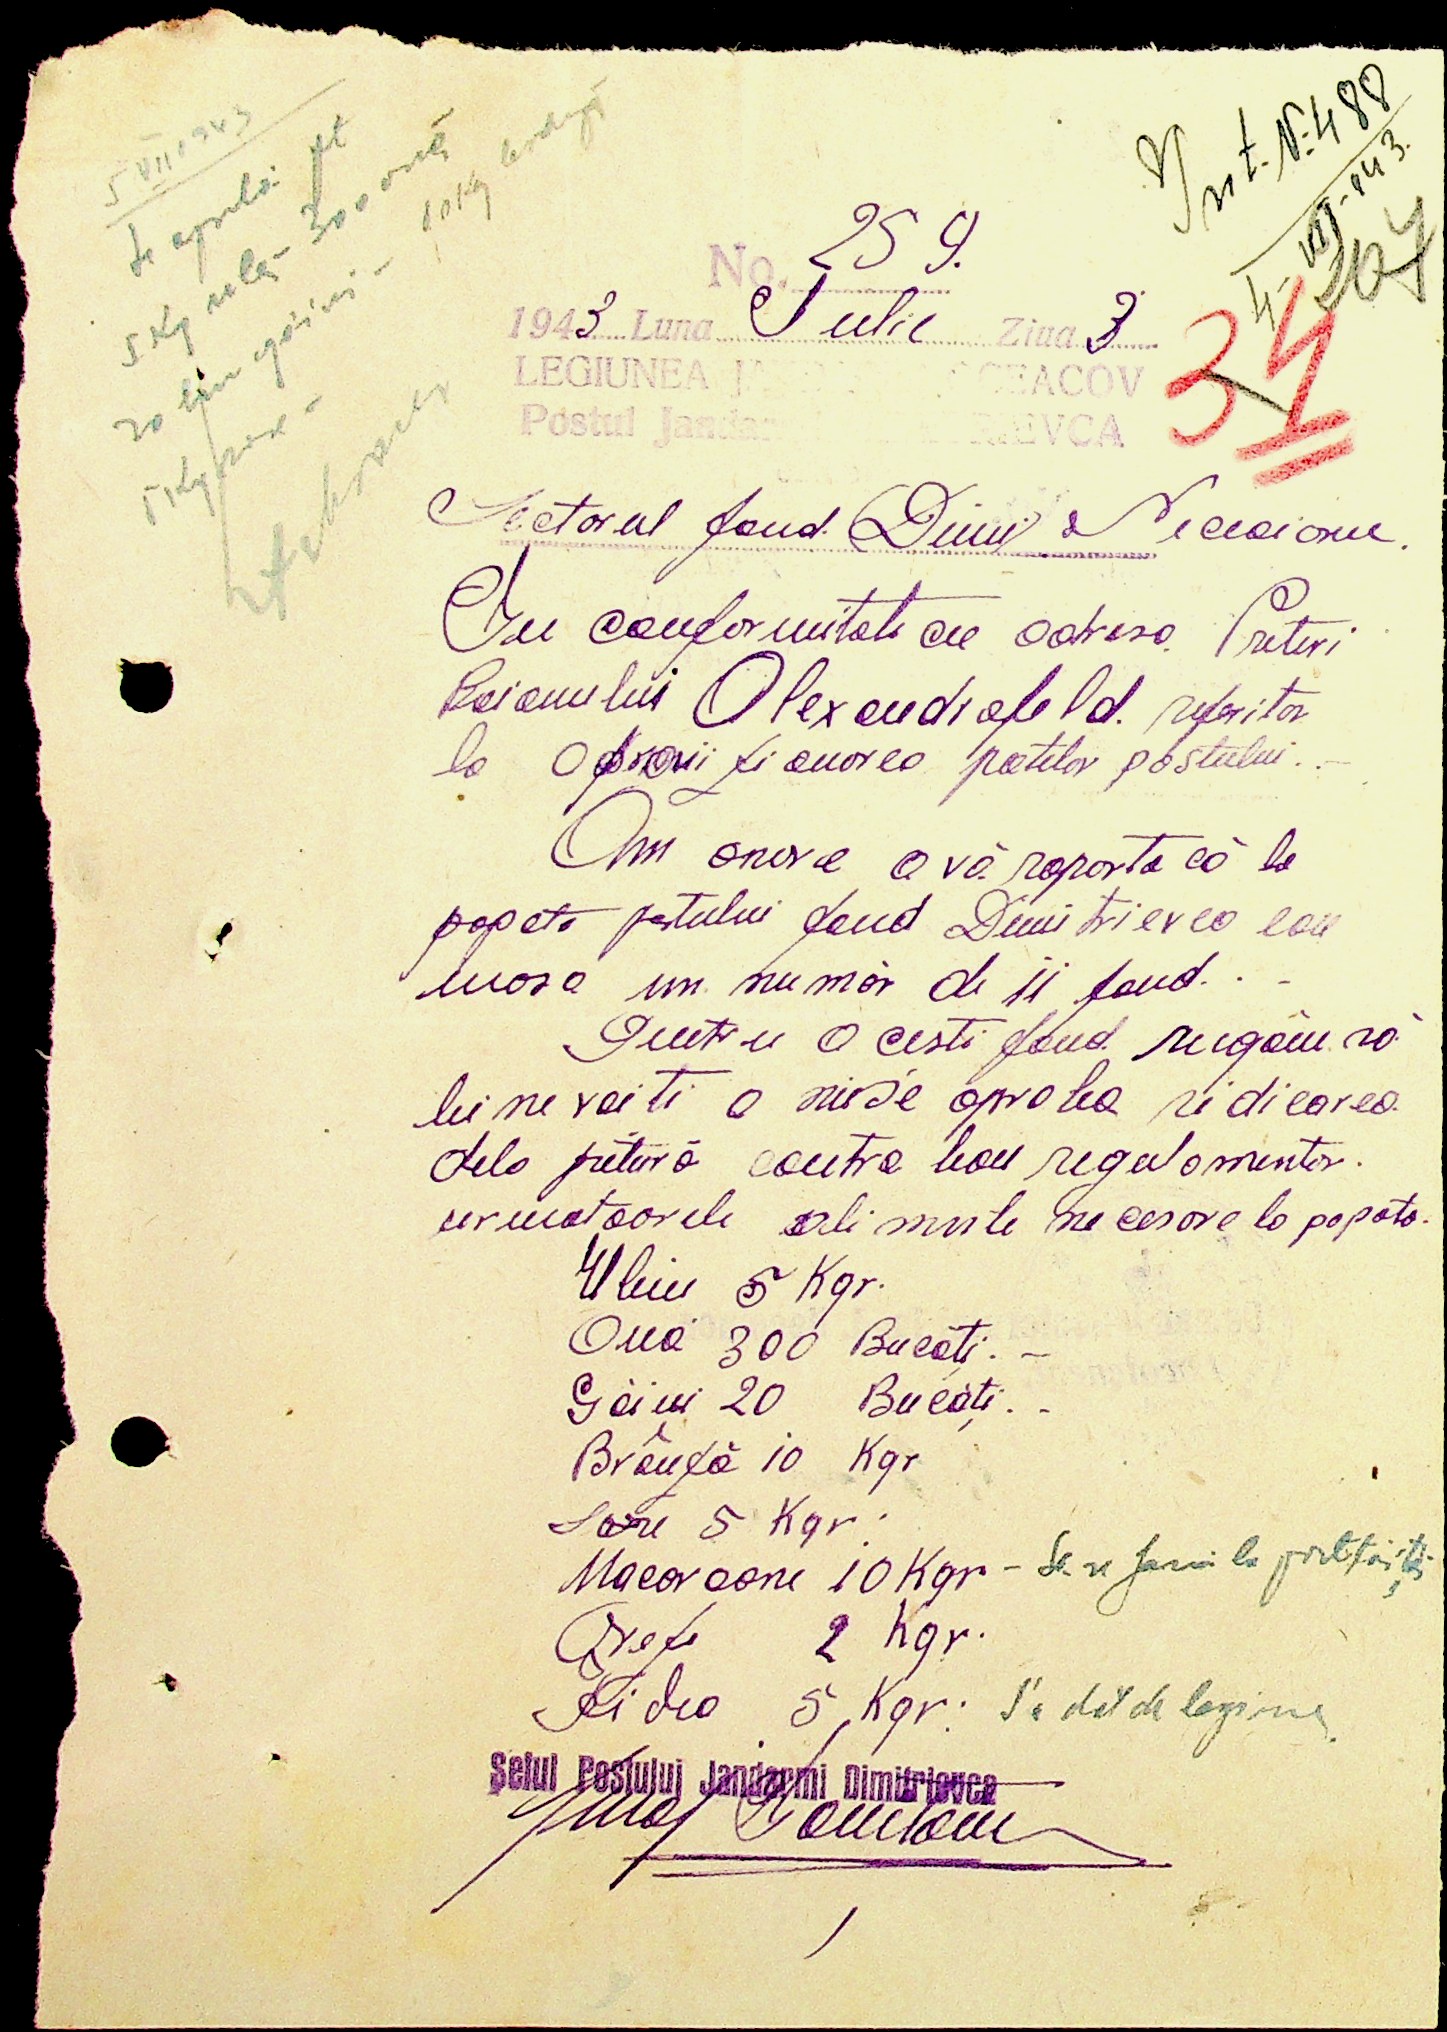 5 VII 1943
Se aprobă pt
5 Kg ulei 300 ouă
20 buc găini - 10 Kg brânză
5 Kg sare -
Int. № 488
4-VII-943.
207
34
No. 259.
1943 Luna Iulie Ziua 3
LEGIUNEA OCEACOV
Postul Jandar
Sectorul jand.
In conformitate cu adresa Preturi
Raionului Alexandrofeld. referitor
la aprovizionarea postului. -
Am onoare a vă raporta că la
popota postului jand Dimitrievca
masa un număr de 11 jand. . -
Pentru acesti jand. rugăm să
binevoiti a ni se aproba ridicarea
dela pretură contra bon regulamentar.
urmatoarele alimente necesare la popota.
Uleiu 5 Kgr.
Ouă 300 Bucăți. -
Găini 20 Bucăți. -
Brânză 10 Kgr
Sare 5 Kgr.
Macaroane 10 Kgr -
Orez 2 Kgr.
5 Kgr. S'a dat de legiune.
Șeful Postului Jandarmi Dimitrievca